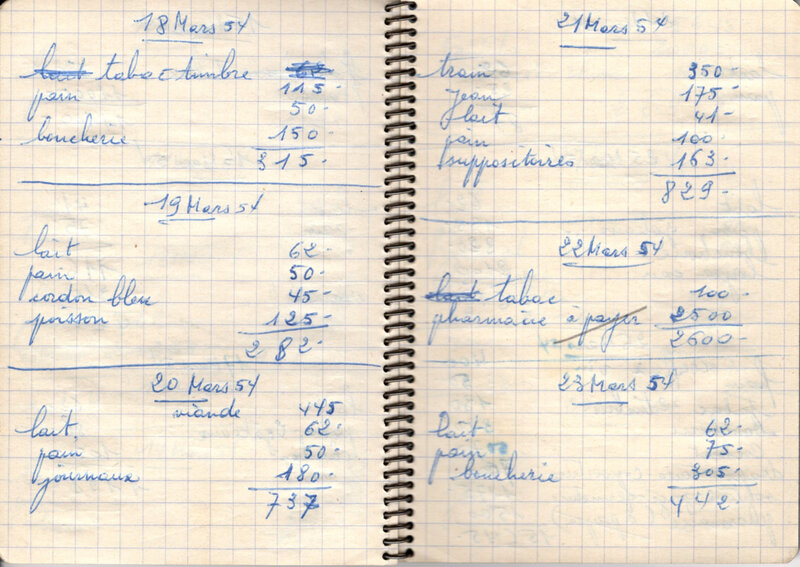 18 Mars 54
lait tabac timbre 62
115-
pain 50-
boucherie 150-
315-
19 Mars 54
lait 62-
pain 50-
cordon bleu 45-
poisson 125-
282-
20 Mars 54
viande 445
lait 62-
pain 50-
journaux 180-
737
21 Mars 54
train 350-
jean 175-
lait 41-
pain 100-
suppositoires 163-
829-
22 Mars 54
lait tabac 100-
pharmacie à payer 2500
2600-
23 Mars 54
lait 62-
pain 75-
boucherie 305-
442-